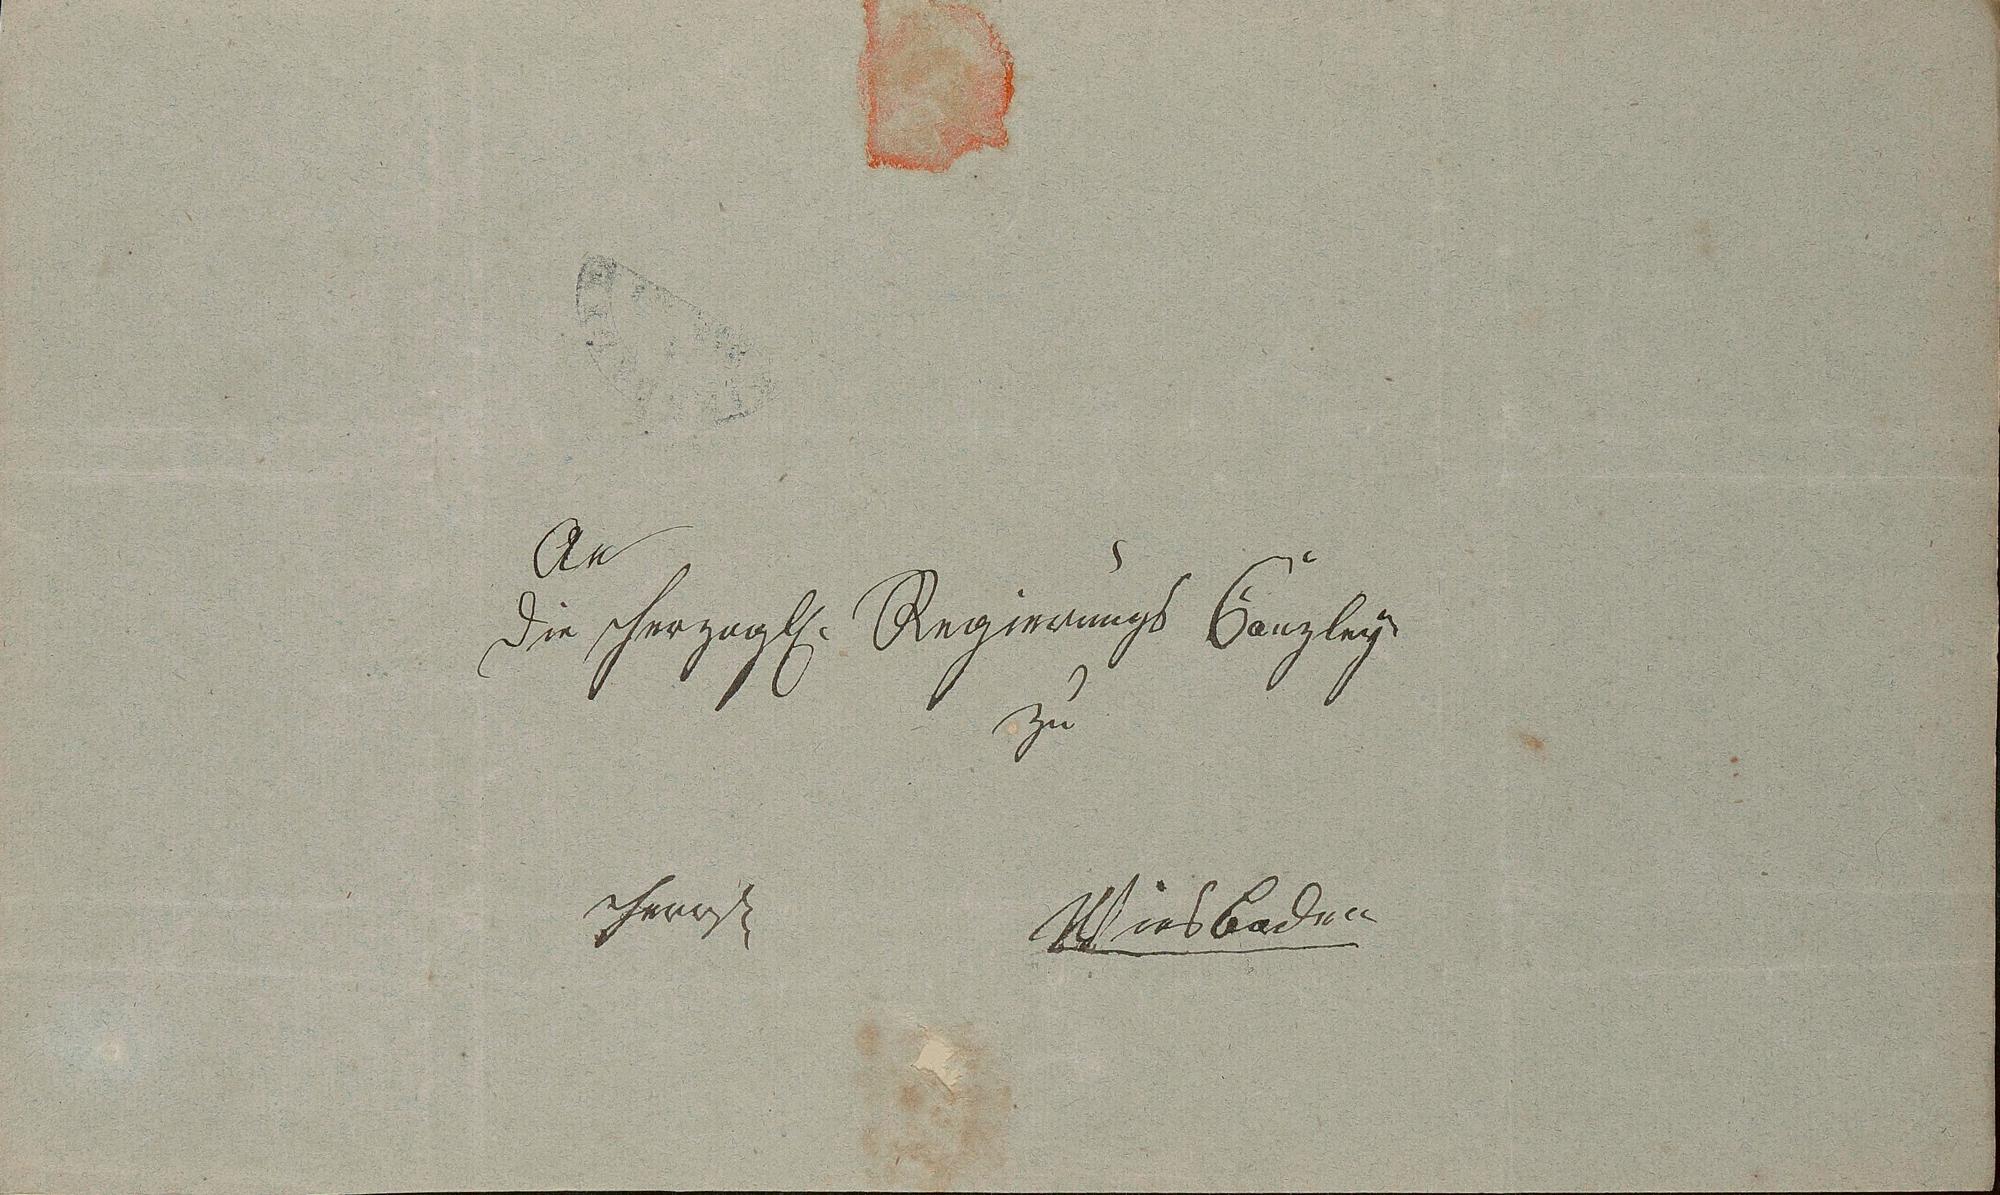 An
die Herzogl. Regierungs Canzley
zu
Wiesbaden